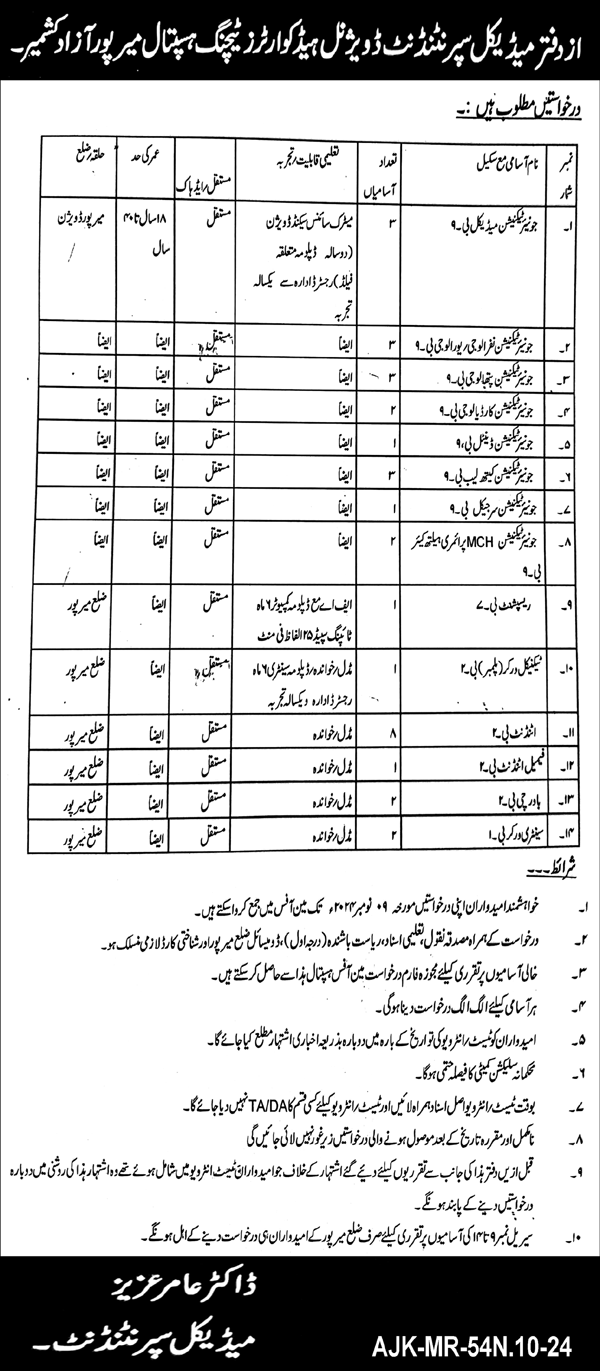 از دفتر میڈیکل سپرنٹنڈنٹ ڈویژنل ہیڈ کوارٹرز ٹیچنگ ہسپتال میرپور آزاد کشمیر۔
درخواستیں مطلوب ہیں :۔
نمبر شمار نام آسامی مع سکیل تعداد آسامیاں تعلیمی قابلیت/تجربہ مستقل/ایڈہاک عمر کی حد حلقہ/ضلع
۱۔ جونیئر ٹیکنیشن میڈیکل بی۔۹ ۳ میٹرک سائنس سیکنڈ ڈویژن مستقل ۱۸ سال تا ۴۰ میرپور ڈویژن
(دو سالہ ڈپلومہ متعلقہ سال
فیلڈ) رجسٹرڈ ادارہ سے یکسالہ
تجربہ
۲۔ جونیئر ٹیکنیشن نفرالوجی/یورالوجی بی۔۹ ۳ ایضاً مستقل ایضاً ایضاً
۳۔ جونیئر ٹیکنیشن پتھالوجی بی۔۹ ۳ ایضاً مستقل ایضاً ایضاً
۴۔ جونیئر ٹیکنیشن کارڈیالوجی بی۔۹ ۲ ایضاً مستقل ایضاً ایضاً
۵۔ جونیئر ٹیکنیشن ڈینٹل بی،۹ ۱ ایضاً مستقل ایضاً ایضاً
۶۔ جونیئر ٹیکنیشن کیتھ لیب بی۔۹ ۳ ایضاً مستقل ایضاً ایضاً
۷۔ جونیئر ٹیکنیشن سرجیکل بی۔۹ ۱ ایضاً مستقل ایضاً ایضاً
۸۔ جونیئر ٹیکنیشن MCH پرائمری ہیلتھ کیئر ۲ ایضاً مستقل ایضاً ایضاً
بی۔۹
۹۔ ریسپشنسٹ بی۔۷ ۱ ایف اے مع ڈپلومہ کمپیوٹر ۶ ماہ مستقل ایضاً ضلع میرپور
ٹائپنگ سپیڈ ۲۵ الفاظ فی منٹ
۱۰۔ ٹیکنیکل ورکر (پلمبر) بی۔۲ ۱ مڈل/خواندہ/ڈپلومہ سینٹری ۶ ماہ مستقل ایضاً ضلع میرپور
رجسٹرڈ ادارہ و یکسالہ تجربہ
۱۱۔ اٹنڈنٹ بی۔۲ ۸ مڈل/خواندہ مستقل ایضاً ضلع میرپور
۱۲۔ فیمیل اٹنڈنٹ بی۔۲ ۱ مڈل/خواندہ مستقل ایضاً ضلع میرپور
۱۳۔ باورچی بی۔۲ ۲ مڈل/خواندہ مستقل ایضاً ضلع میرپور
۱۴۔ سینٹری ورکر بی۔۱ ۲ مڈل/خواندہ مستقل ایضاً ضلع میرپور
شرائط۔۔۔۔
۱۔ خواہشمند امیدواران اپنی درخواستیں مورخہ ۰۹ نومبر ۲۰۲۴ء تک مین آفس میں جمع کروا سکتے ہیں۔
۲۔ درخواست کے ہمراہ مصدقہ نقول، تعلیمی اسناد، ریاست باشندہ (درجہ اول)، ڈومیسائل ضلع میرپور اور شناختی کارڈ لازمی منسلک ہو۔
۳۔ خالی آسامیوں پر تقرری کیلئے مجوزہ فارم درخواست مین آفس ہسپتال ہذا سے حاصل کر سکتے ہیں۔
۴۔ ہر آسامی کیلئے الگ الگ درخواست دینا ہوگی۔
۵۔ امیدواران کو ٹیسٹ/انٹرویو کی تواریخ کے بارہ میں دوبارہ بذریعہ اخباری اشتہار مطلع کیا جائے گا۔
۶۔ محکمانہ سلیکشن کمیٹی کا فیصلہ حتمی ہوگا۔
۷۔ بوقت ٹیسٹ/انٹرویو اصل اسناد ہمراہ لائیں اور ٹیسٹ/انٹرویو کیلئے کسی قسم کا TA/DA نہیں دیا جائے گا۔
۸۔ نامکمل اور مقررہ تاریخ کے بعد موصول ہونے والی درخواستیں زیر غور نہیں لائی جائیں گی
۹۔ قبل ازیں دفتر ہذا کی جانب سے تقرریوں کیلئے دیئے گئے اشتہار کے خلاف جو امیدواران ٹیسٹ انٹرویو میں شامل ہوئے تھے وہ اشتہار ہذا کی روشنی میں دوبارہ
درخواستیں دینے کے پابند ہونگے۔
۱۰۔ سیریل نمبر ۹ تا ۱۴ کی آسامیوں پر تقرری کیلئے صرف ضلع میرپور کے امیدواران ہی درخواست دینے کے اہل ہونگے۔
ڈاکٹر عامر عزیز
میڈیکل سپرنٹنڈنٹ۔
AJK-MR-54N.10-24